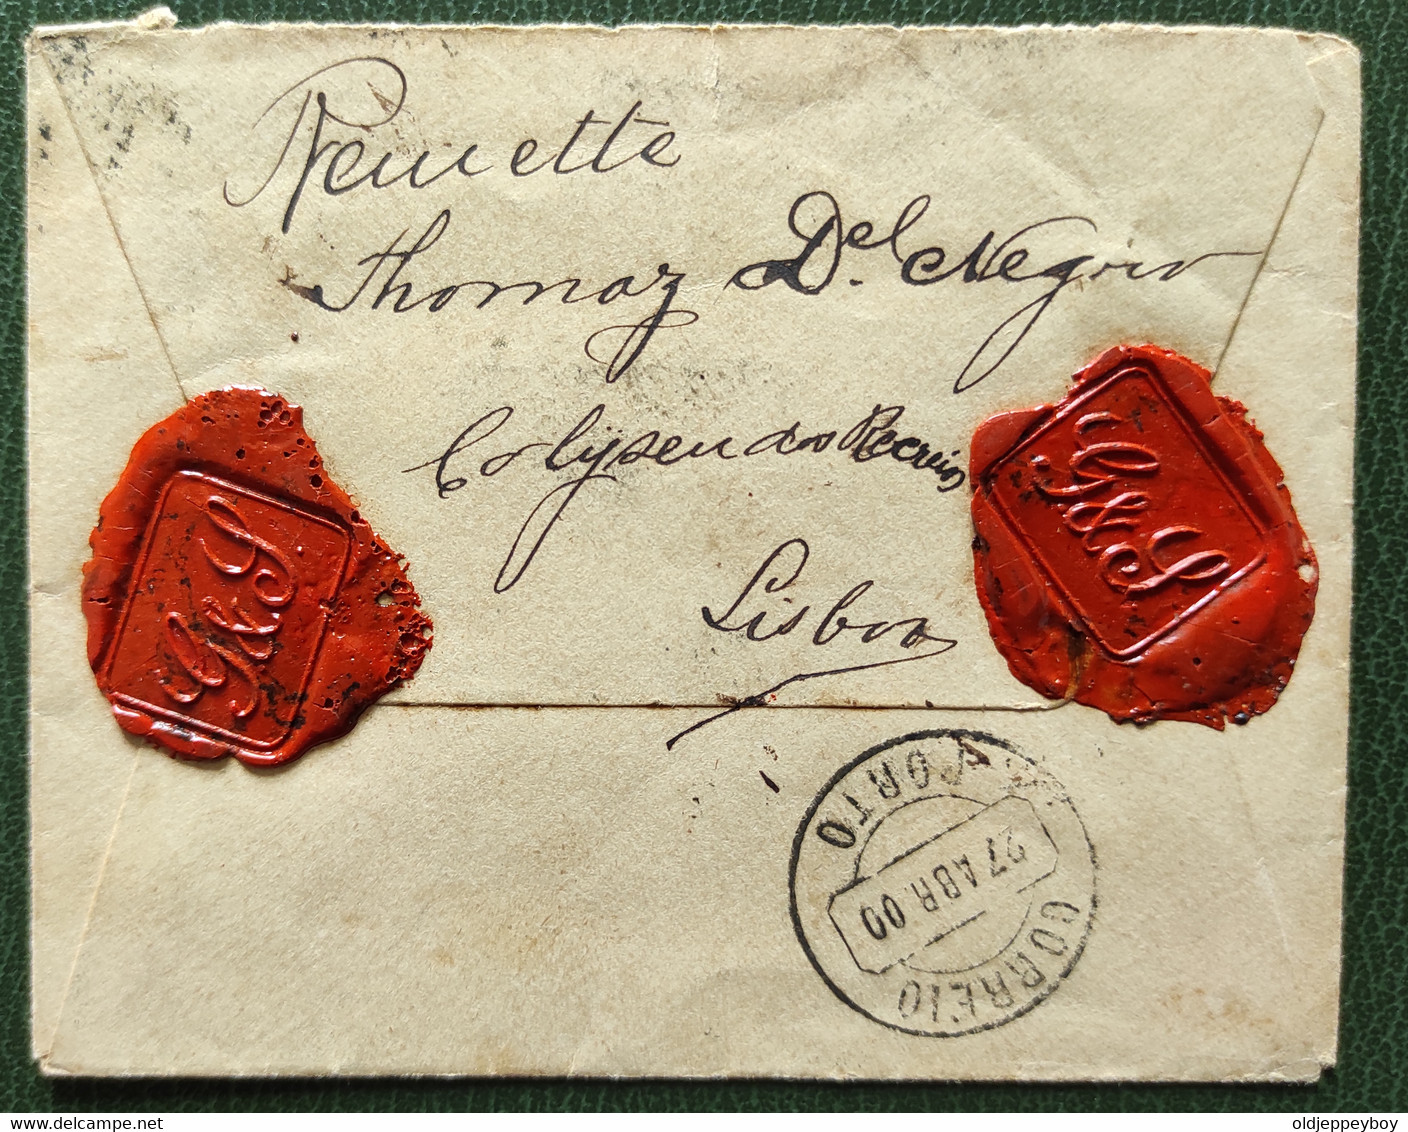 Remette
Thomaz Del Negro
Colyseu dos Recreios
Lisboa
G&S
G&S
CORREIO
PORTO
27 ABR. 00
www.delcampe.net
oldjeppeyboy